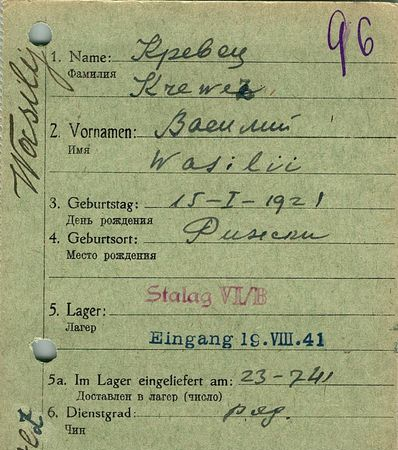 96
1. Name: Кревец
Фамилия
Krewez
2. Vornamen: Василий
Имя
Wasilii
3. Geburtstag: 15-I-1921
День рождения
4. Geburtsort:
Место рождения
Stalag VI/B
5. Lager:
Лагерь
Eingang 19.VIII.41
5a. Im Lager eingeliefert am: 23-741
Доставлен в лагерь (число)
6. Dienstgrad: ряд.
Чин
Wasilij